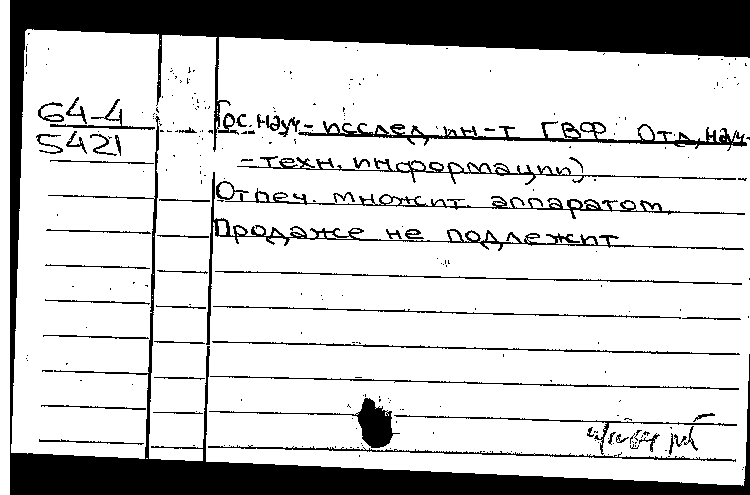 64-4
5421
Гос. науч-исслед. ин-т ГВФ. Отд, науч-
-техн. информации).
Отпеч. множит. аппаратом.
Продаже не подлежит